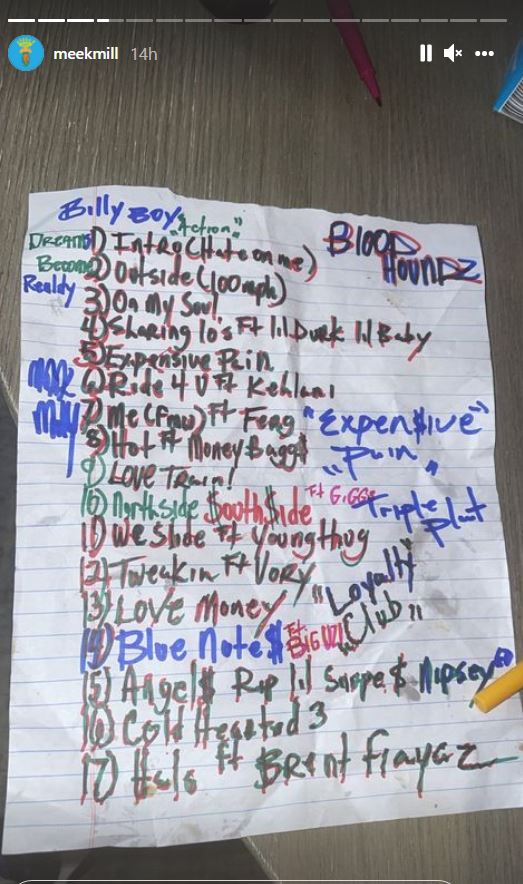 meekmill 14h
Billy Boy "Action"
BlOOD
HOUNDZ
DREAMS
Become
Realdy
1) Intro (Hate on me)
2) Outside (100mph)
3) On My Soul
4) Sharing lo's Ft lil Durk lil Baby
5) Expensive Pain
6) Ride 4 U Ft Kehlani
7) Me (FMW) Ft Feng
8) Hot Ft MoneyBagg$
9) LOVE Train!
10) Northside $outh$ide Ft GiGGs
11) We Slide Ft Young thug
12) Tweakin Ft VORY
13) LOVE Money
14) Blue Note$ Ft BiG UZI
15) Angel$ Rip lil Snupe $ Nipsey
16) Cold Hearted 3
17) Halo ft BRent fiayaz
Meek
Milly
"Expen$ive"
"Pain"
Triple Plat
"Loyalty
Club"